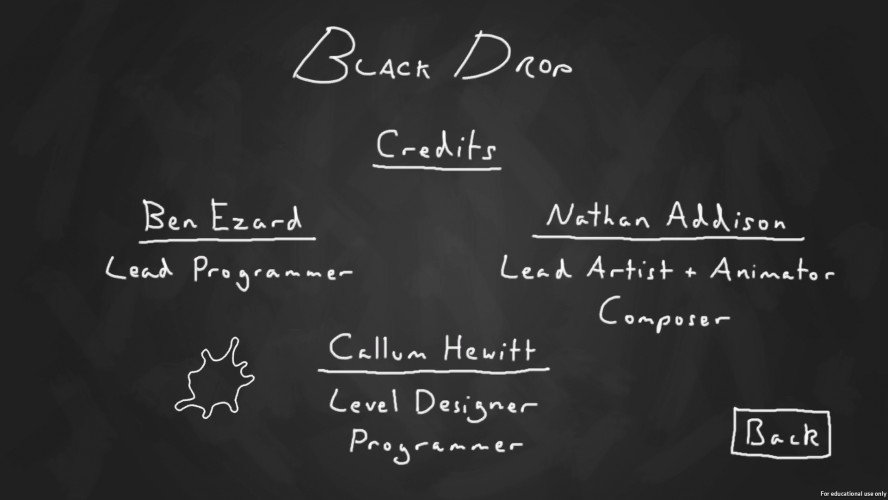 Black Drop
Credits
Ben Ezard
Lead Programmer
Nathan Addison
Lead Artist + Animator
Composer
Callum Hewitt
Level Designer
Programmer
Back
For educational use only